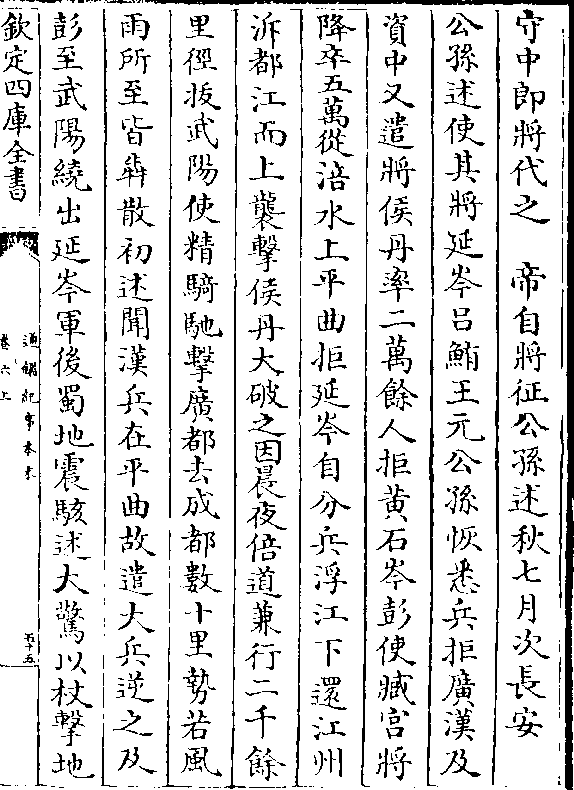 守中郎將代之　帝自將征公孫述秋七月次長安
公孫述使其將延岑吕鮪王元公孫恢悉兵拒廣漢及
資中又遣將侯丹率二萬餘人拒黄石岑彭使臧宫將
降卒五萬從涪水上平曲拒延岑自分兵浮江下還江州
泝都江而上襲擊侯丹大破之因晨夜倍道兼行二千餘
里徑拔武陽使精騎馳擊廣都去成都數十里勢若風
雨所至皆犇散初述聞漢兵在平曲故遣大兵逆之及
彭至武陽繞出延岑軍後蜀地震駭述大驚以杖擊地
欽定四庫全書
通鑑紀事本末
卷六上
五十五